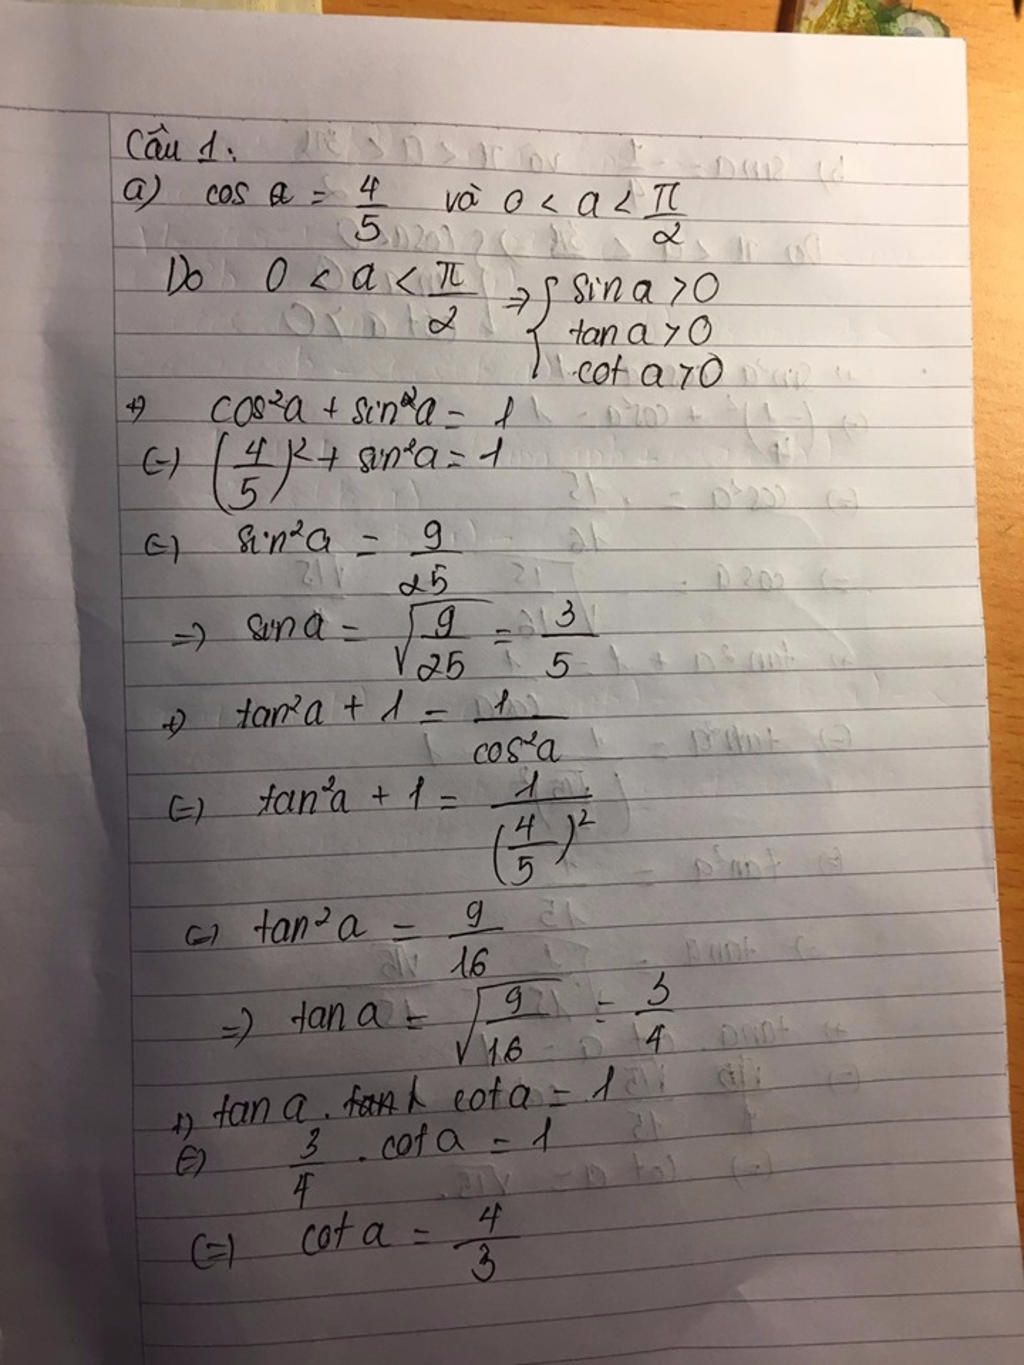 Câu 1:
a) cos a = 4/5 và 0 < a < π/2
Do 0 < a < π/2 => { sin a > 0
tan a > 0
cot a > 0
+) cos²a + sin²a = 1
(=) (4/5)² + sin²a = 1
(=) sin²a = 9/25
=> sin a = √(9/25) = 3/5
+) tan²a + 1 = 1/cos²a
(=) tan²a + 1 = 1/(4/5)²
(=) tan²a = 9/16
=) tan a = √(9/16) = 3/4
+) tan a . cot a = 1
(=) 3/4 . cot a = 1
(=) cot a = 4/3